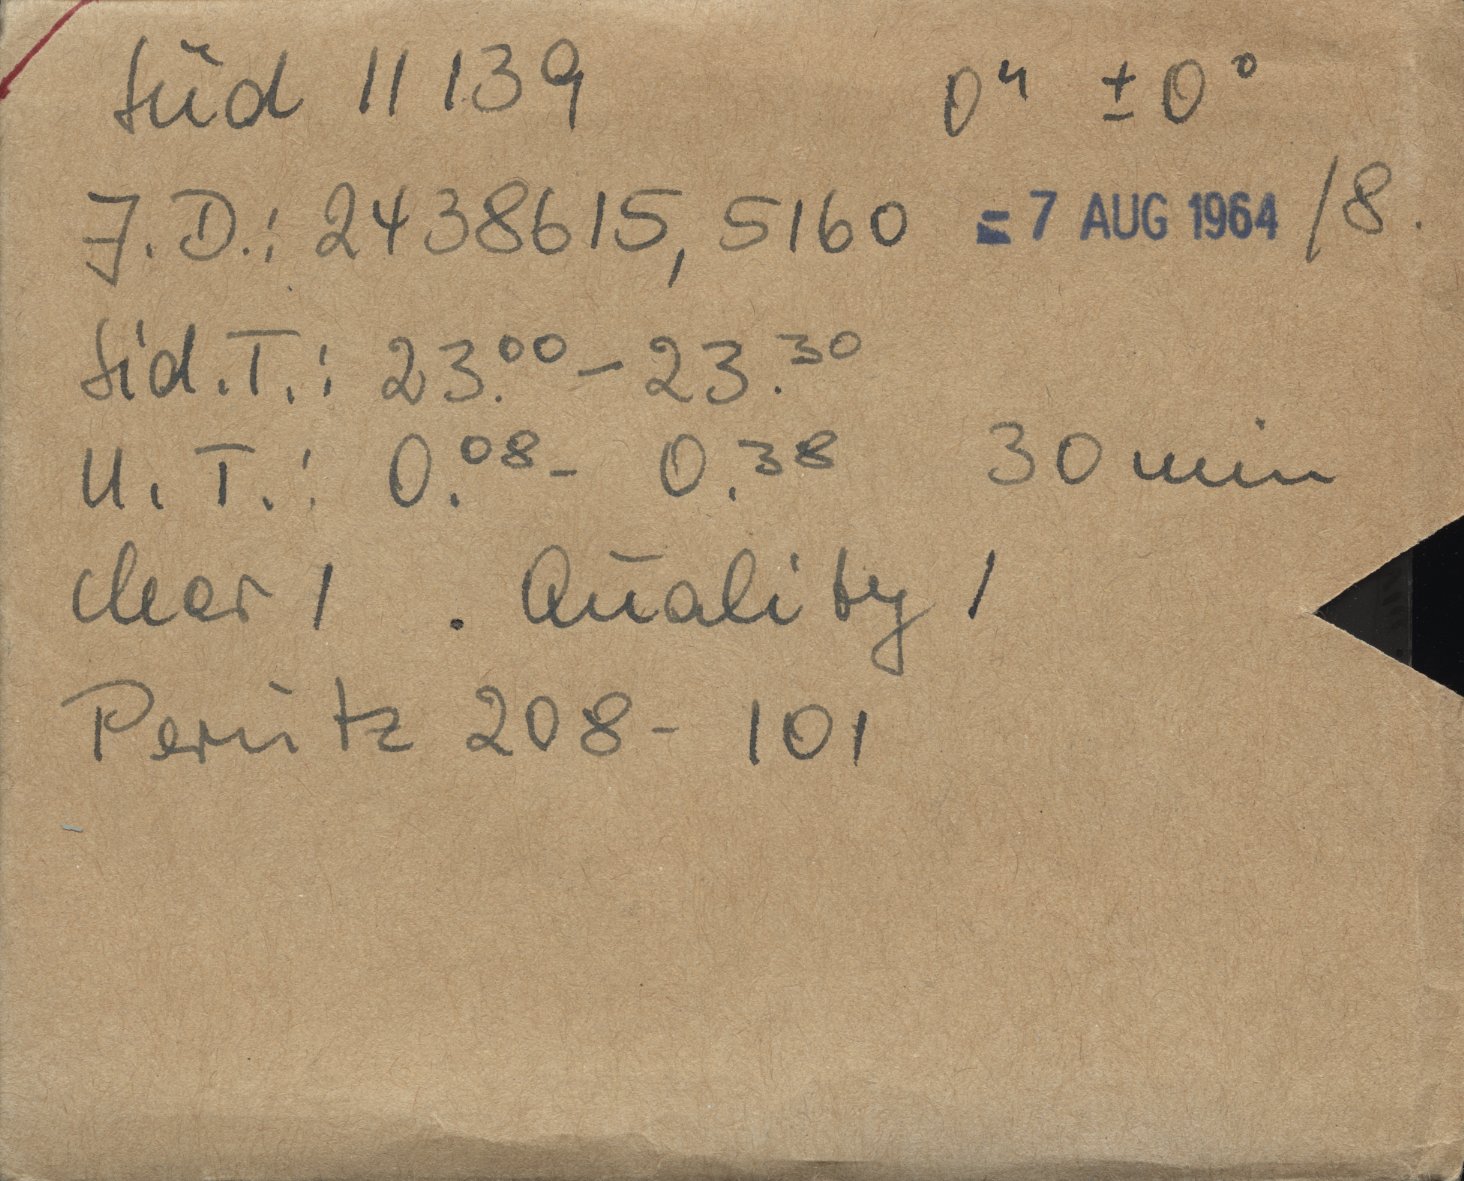 Süd 11139 0ʰ ±0°
J.D.: 2438615,5160 = 7 AUG 1964 /8.
Sid.T.: 23.⁰⁰ – 23.³⁰
U.T.: 0.⁰⁸ – 0.³⁸ 30 min
clear 1 . Quality 1
Perutz 208 - 101